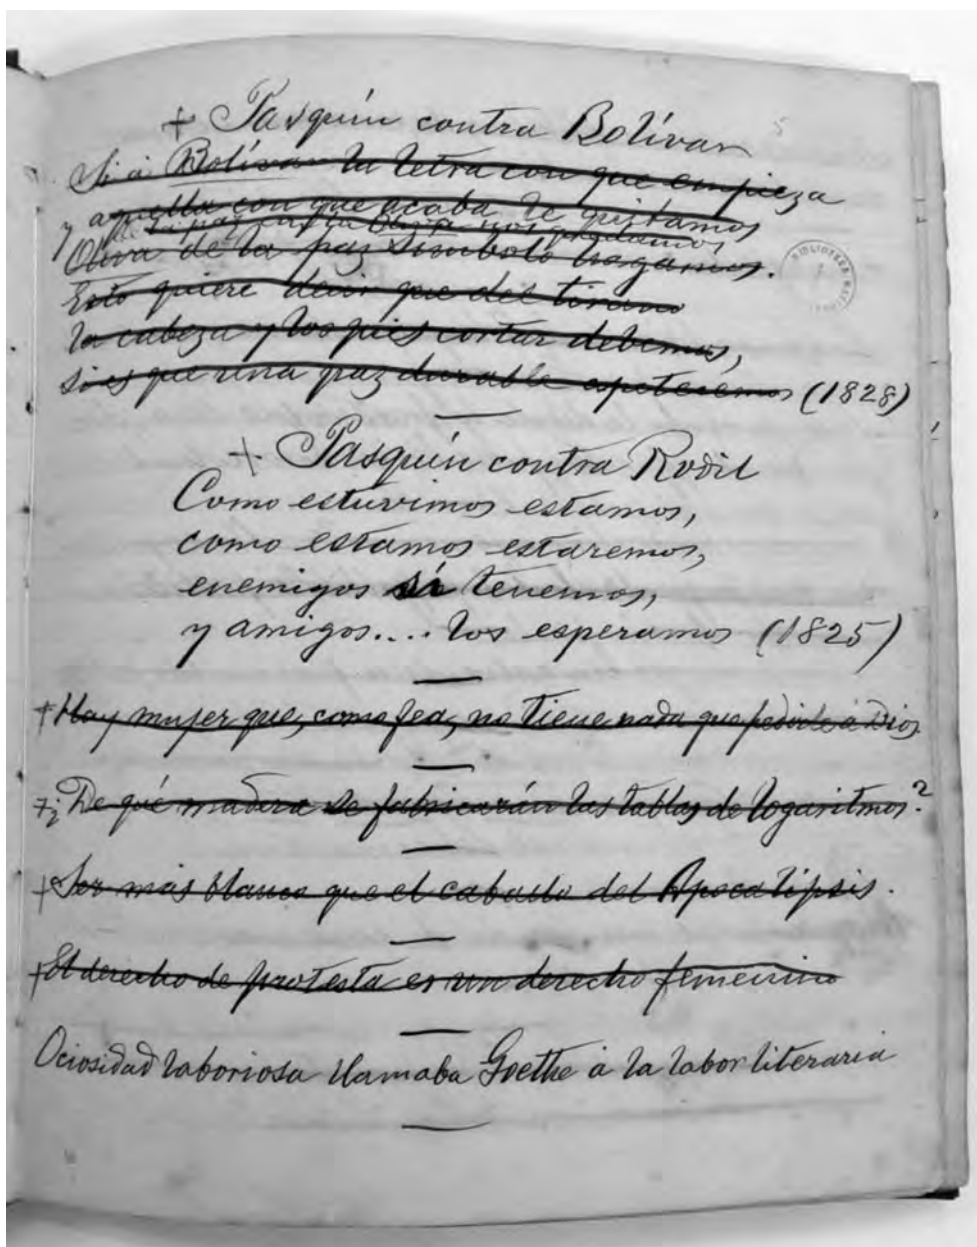 + Pasquín contra Bolívar
Si á Bolívar la letra con que empieza
y aquella con que acaba le quitamos
de la paz con la Oliva nos quedamos
Oliva de la paz símbolo hagamos.
Esto quiere decir que del tirano
la cabeza y los pies cortar debemos,
si es que una paz durable apetecemos (1828)
+ Pasquín contra Rodil
Como estuvimos estamos,
como estamos estaremos,
enemigos sí tenemos,
y amigos.... los esperamos (1825)
+ Hay mujer que, como fea, no tiene nada que pedirle á Dios.
+ ¿De qué madera se fabricarán las tablas de logaritmos?
+ Ser más blanco que el caballo del Apocalipsis.
+ El derecho de protesta es un derecho femenino
Ociosidad laboriosa llamaba Goethe á la labor literaria